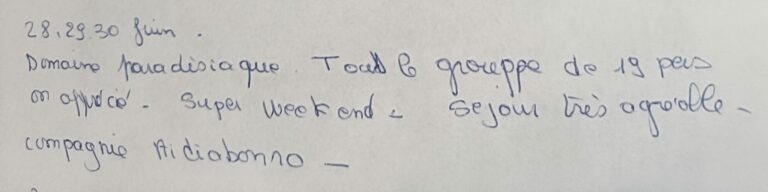 28.29.30 Juin.
Domaine paradisiaque. Tout le grouppe de 19 pers
on apprécié - Super weekend - Sejour très agréable -
compagnie Aidiabonno -